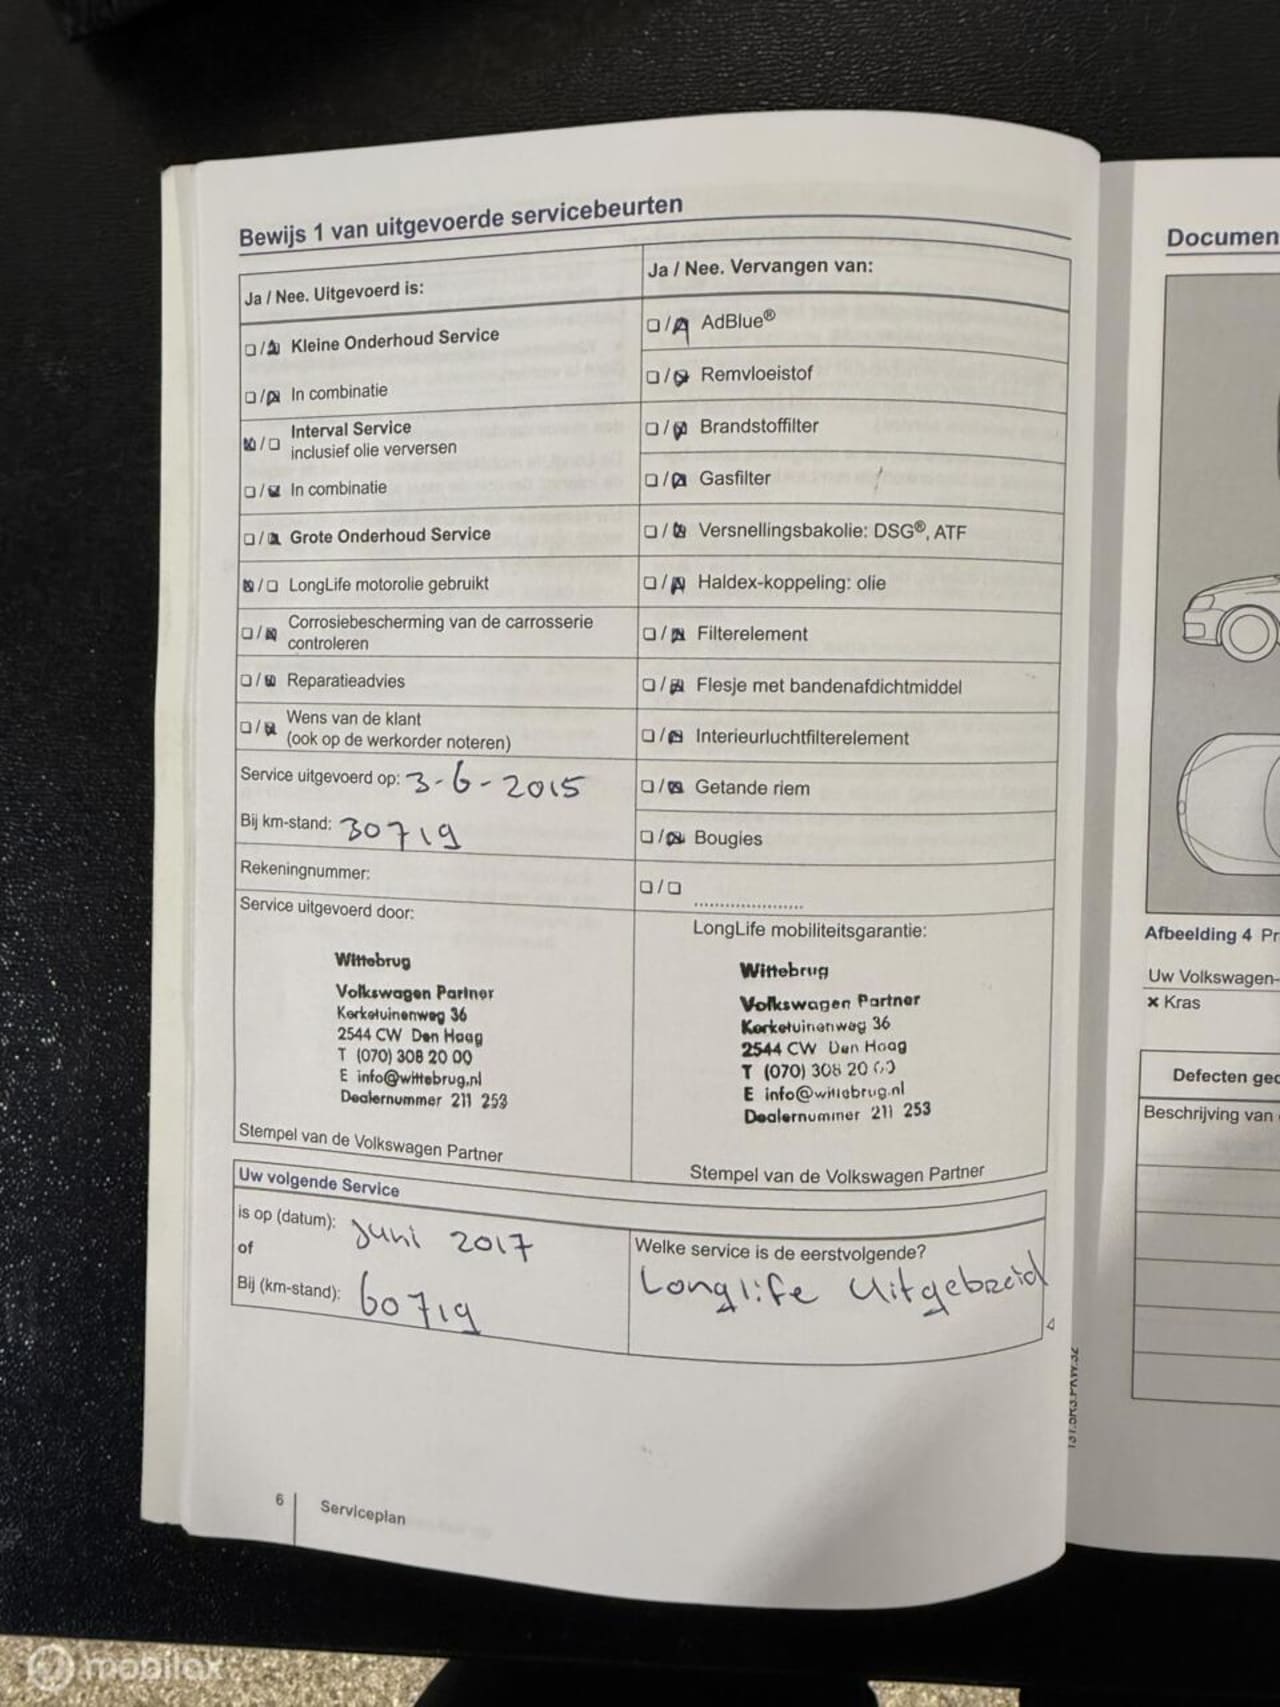 Bewijs 1 van uitgevoerde servicebeurten
Ja / Nee. Uitgevoerd is:
Kleine Onderhoud Service
In combinatie
Interval Service
inclusief olie verversen
In combinatie
Grote Onderhoud Service
LongLife motorolie gebruikt
Corrosiebescherming van de carrosserie
controleren
Reparatieadvies
Wens van de klant
(ook op de werkorder noteren)
Service uitgevoerd op: 3-6-2015
Bij km-stand: 30719
Rekeningnummer:
Service uitgevoerd door:
Wittebrug
Volkswagen Partner
Kerketuinenweg 36
2544 CW Den Haag
T (070) 308 20 00
E info@wittebrug.nl
Dealernummer 211 253
Stempel van de Volkswagen Partner
Ja / Nee. Vervangen van:
AdBlue®
Remvloeistof
Brandstoffilter
Gasfilter
Versnellingsbakolie: DSG®, ATF
Haldex-koppeling: olie
Filterelement
Flesje met bandenafdichtmiddel
Interieurluchtfilterelement
Getande riem
Bougies
....................
LongLife mobiliteitsgarantie:
Wittebrug
Volkswagen Partner
Kerketuinenweg 36
2544 CW Den Haag
T (070) 308 20 00
E info@wittebrug.nl
Dealernummer 211 253
Stempel van de Volkswagen Partner
Uw volgende Service
is op (datum): juni 2017
of
Bij (km-stand): 60719
Welke service is de eerstvolgende?
Longlife Uitgebreid
6
Serviceplan
Documen
Afbeelding 4 Pr
Uw Volkswagen-
× Kras
Defecten gec
Beschrijving van
mobilox